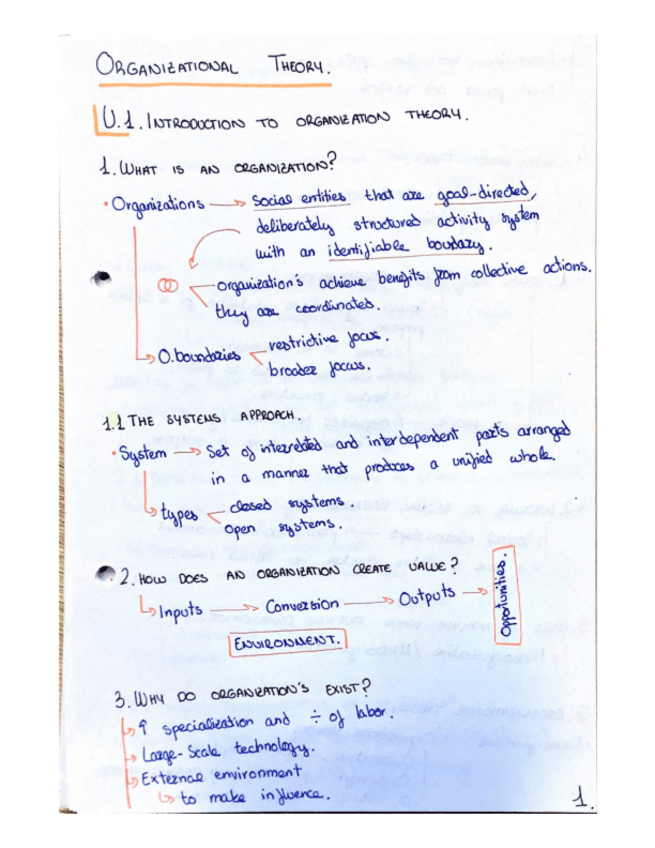 ORGANIZATIONAL THEORY.
U.1. INTRODUCTION TO ORGANIZATION THEORY.
1. WHAT IS AN ORGANIZATION?
• Organizations → Social entities that are goal-directed,
deliberately structured activity system
with an identifiable boundary.
organization's achieve benefits from collective actions.
they are coordinated.
O.boundaries restrictive focus.
broader focus.
1.1 THE SYSTEMS APPROACH.
• System → Set of interrelated and interdependent parts arranged
in a manner that produces a unified whole.
types closed systems.
open systems.
2. HOW DOES AN ORGANIZATION CREATE VALUE?
Inputs → Conversion → Outputs → Opportunities.
ENVIRONMENT.
3. WHY DO ORGANIZATION'S EXIST?
↑ specialization and ÷ of labor.
Large-Scale technology.
External environment
to make influence.
1.